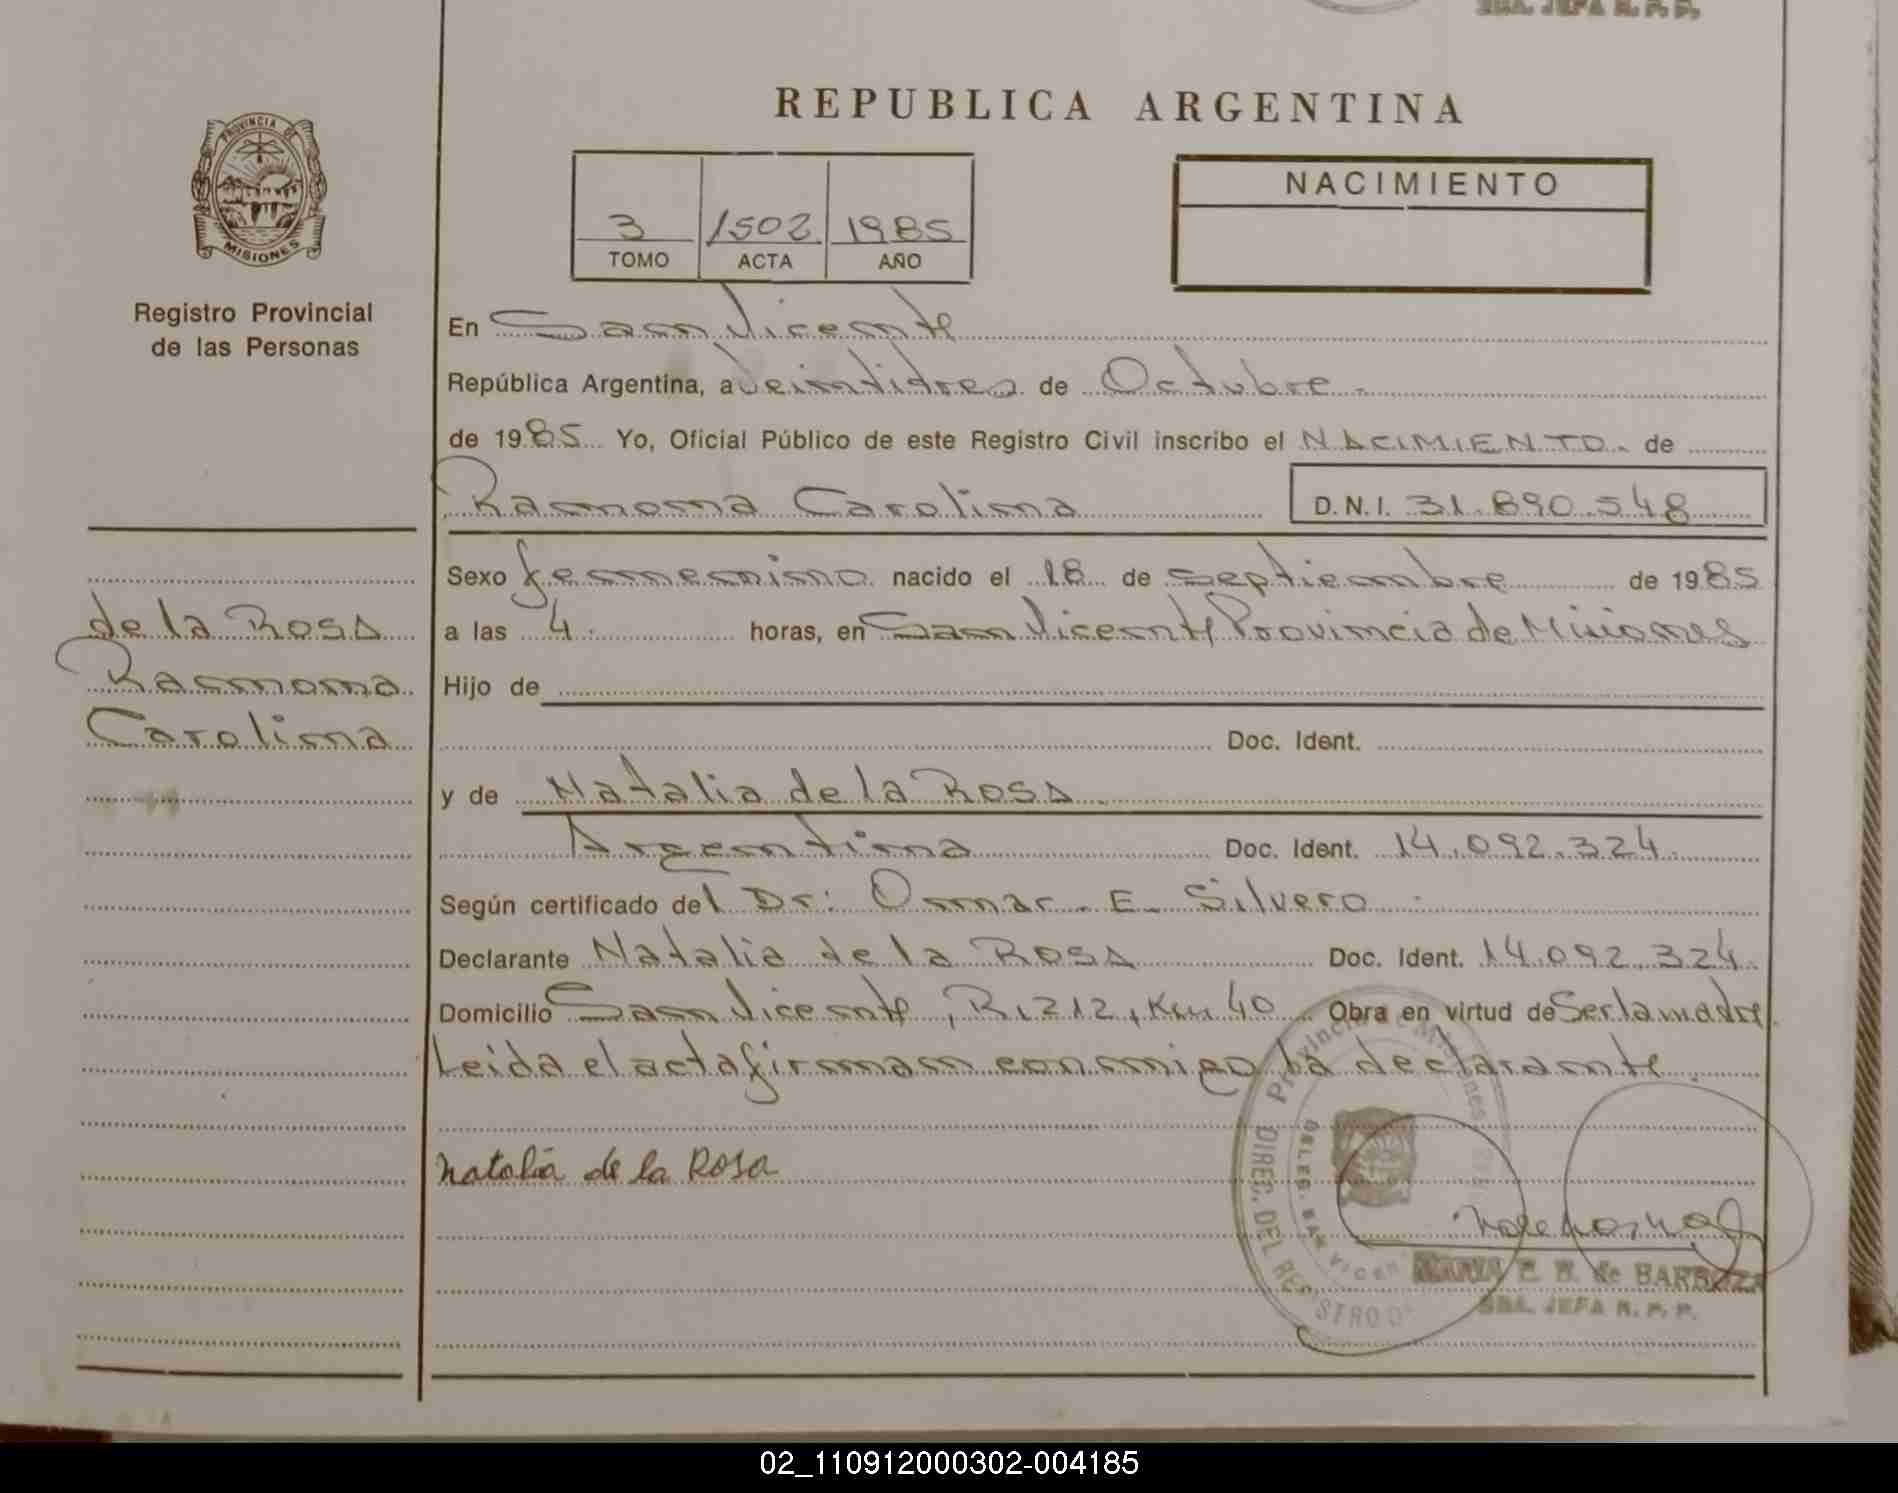 SRA. JEFA R. P. P.
REPUBLICA ARGENTINA
PROVINCIA DE
MISIONES
Registro Provincial
de las Personas
3 1502 1985
TOMO ACTA AÑO
NACIMIENTO
En San Vicente
República Argentina, a Veintitres de Octubre.
de 1985 Yo, Oficial Público de este Registro Civil inscribo el NACIMIENTO. de
Ramona Carolina D.N.I. 31.890.548
Sexo femenino nacido el 18 de septiembre de 1985
a las 4. horas, en San Vicente Provincia de Misiones
Hijo de
Doc. Ident.
y de Natalia de la Rosa
Argentina Doc. Ident. 14.092.324.
Según certificado del Dr: Omar E. Silvero
Declarante Natalia de la Rosa Doc. Ident. 14.092.324.
Domicilio San Vicente, R. 212, Km 40 Obra en virtud de Ser la madre.
Leida el acta firman conmigo la declarante.
de la Rosa
Ramona
Carolina
Natalia de la Rosa
Provincia de Misiones
DIREC. DEL REGISTRO
DELEG. SAN VICEN
MARIA E. B. de BARBOZA
SRA. JEFA R. P. P.
02_110912000302-004185